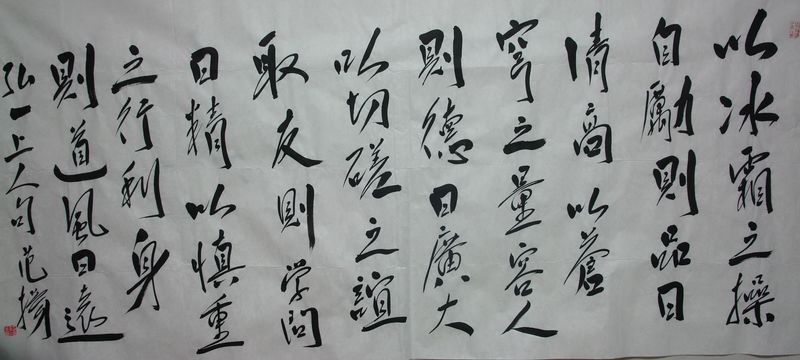 以冰霜之操
自勵則品日
清高以蒼
穹之量容人
則德日廣大
以切磋之誼
取友則学問
日精以慎重
之行利身
則道風日遠
弘一上人句 范